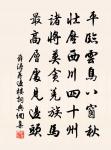 平臨雲鳥八窗秋
壯壓西川四十州
諸將莫貪羌族馬
最高層處見邊頭
薛濤籌邊樓詞典網書